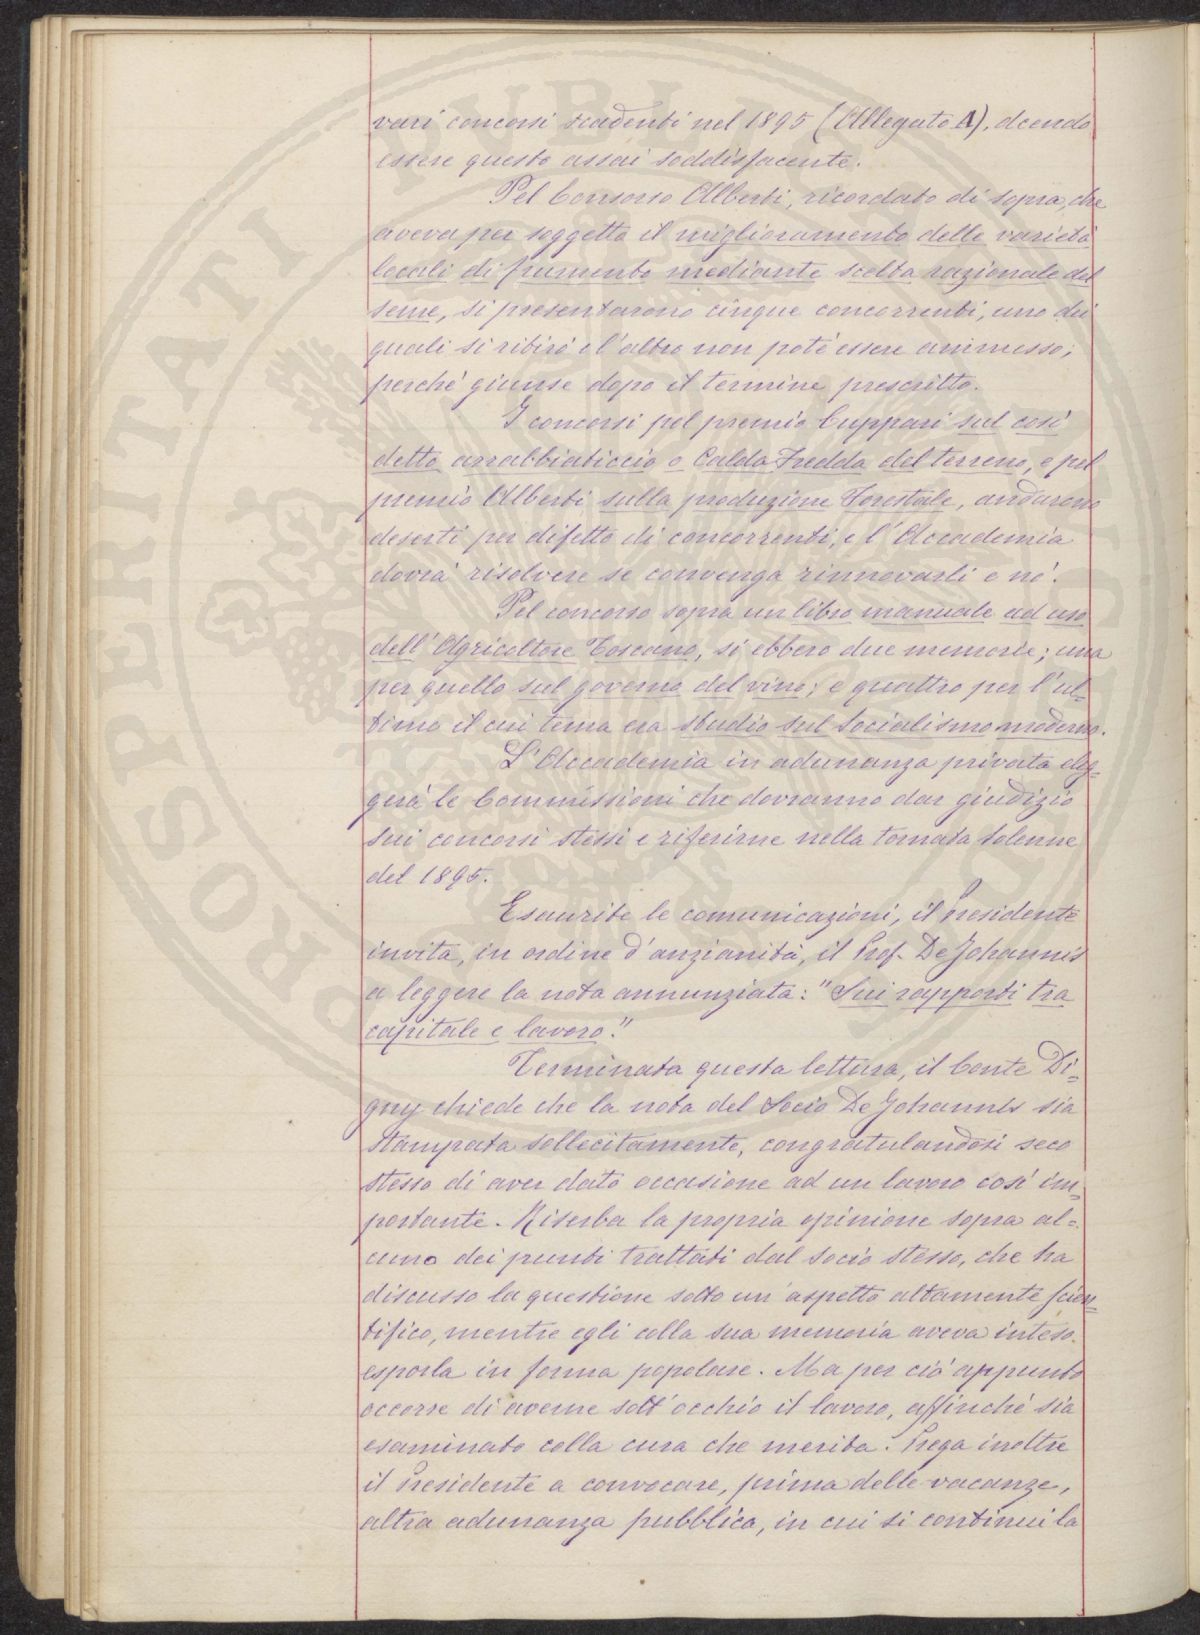 vari concorsi scadenti nel 1895 (Allegato A), dcendo
essere questo assai soddisfacente.
Pel Concorso Alberti, ricordato di sopra, che
aveva per soggetto il miglioramento delle varietà
locali di frumento mediante scelta razionale del
seme, si presentarono cinque concorrenti, uno dei
quali si ritirò e l'altro non potè essere ammesso;
perchè giunse dopo il termine prescritto.
I concorsi pel premio Cuppari sul così
detto arrabbiaticcio o Calda Fredda del terreno, e pel
premio Alberti sulla produzione Forestale, andarono
deserti per difetto di concorrenti, e l'Accademia
dovrà risolvere se convenga rinnovarli o nò.
Pel concorso sopra un libro manuale ad uso
dell'Agricoltore Toscano, si ebbero due memorie; una
per quello sul governo del vino; e quattro per l'ul=
timo il cui tema era studio sul Socialismo moderno.
L'Accademia in adunanza privata eleg=
gerà le Commissioni che dovranno dar giudizio
sui concorsi stessi e riferirne nella tornata solenne
del 1895.
Esaurite le comunicazioni, il Presidente
invita, in ordine d'anzianità, il Prof. De Johannis
a leggere la nota annunziata: "Sui rapporti tra
capitale e lavoro."
Terminata questa lettura, il Conte Di=
gny chiede che la nota del Socio De Johannis sia
stampata sollecitamente, congratulandosi seco
stesso di aver dato occasione ad un lavoro così im=
portante. Riserba la propria opinione sopra al=
cuno dei punti trattati dal socio stesso, che ha
discusso la questione sotto un aspetto altamente scien=
tifico, mentre egli colla sua memoria aveva inteso
esporla in forma popolare. Ma per ciò appunto
occorre di averne sott'occhio il lavoro, affinchè sia
esaminato colla cura che merita. Prega inoltre
il Presidente a convocare, prima delle vacanze,
altra adunanza pubblica, in cui si continui la
PROSPERITATI PUBLICAE